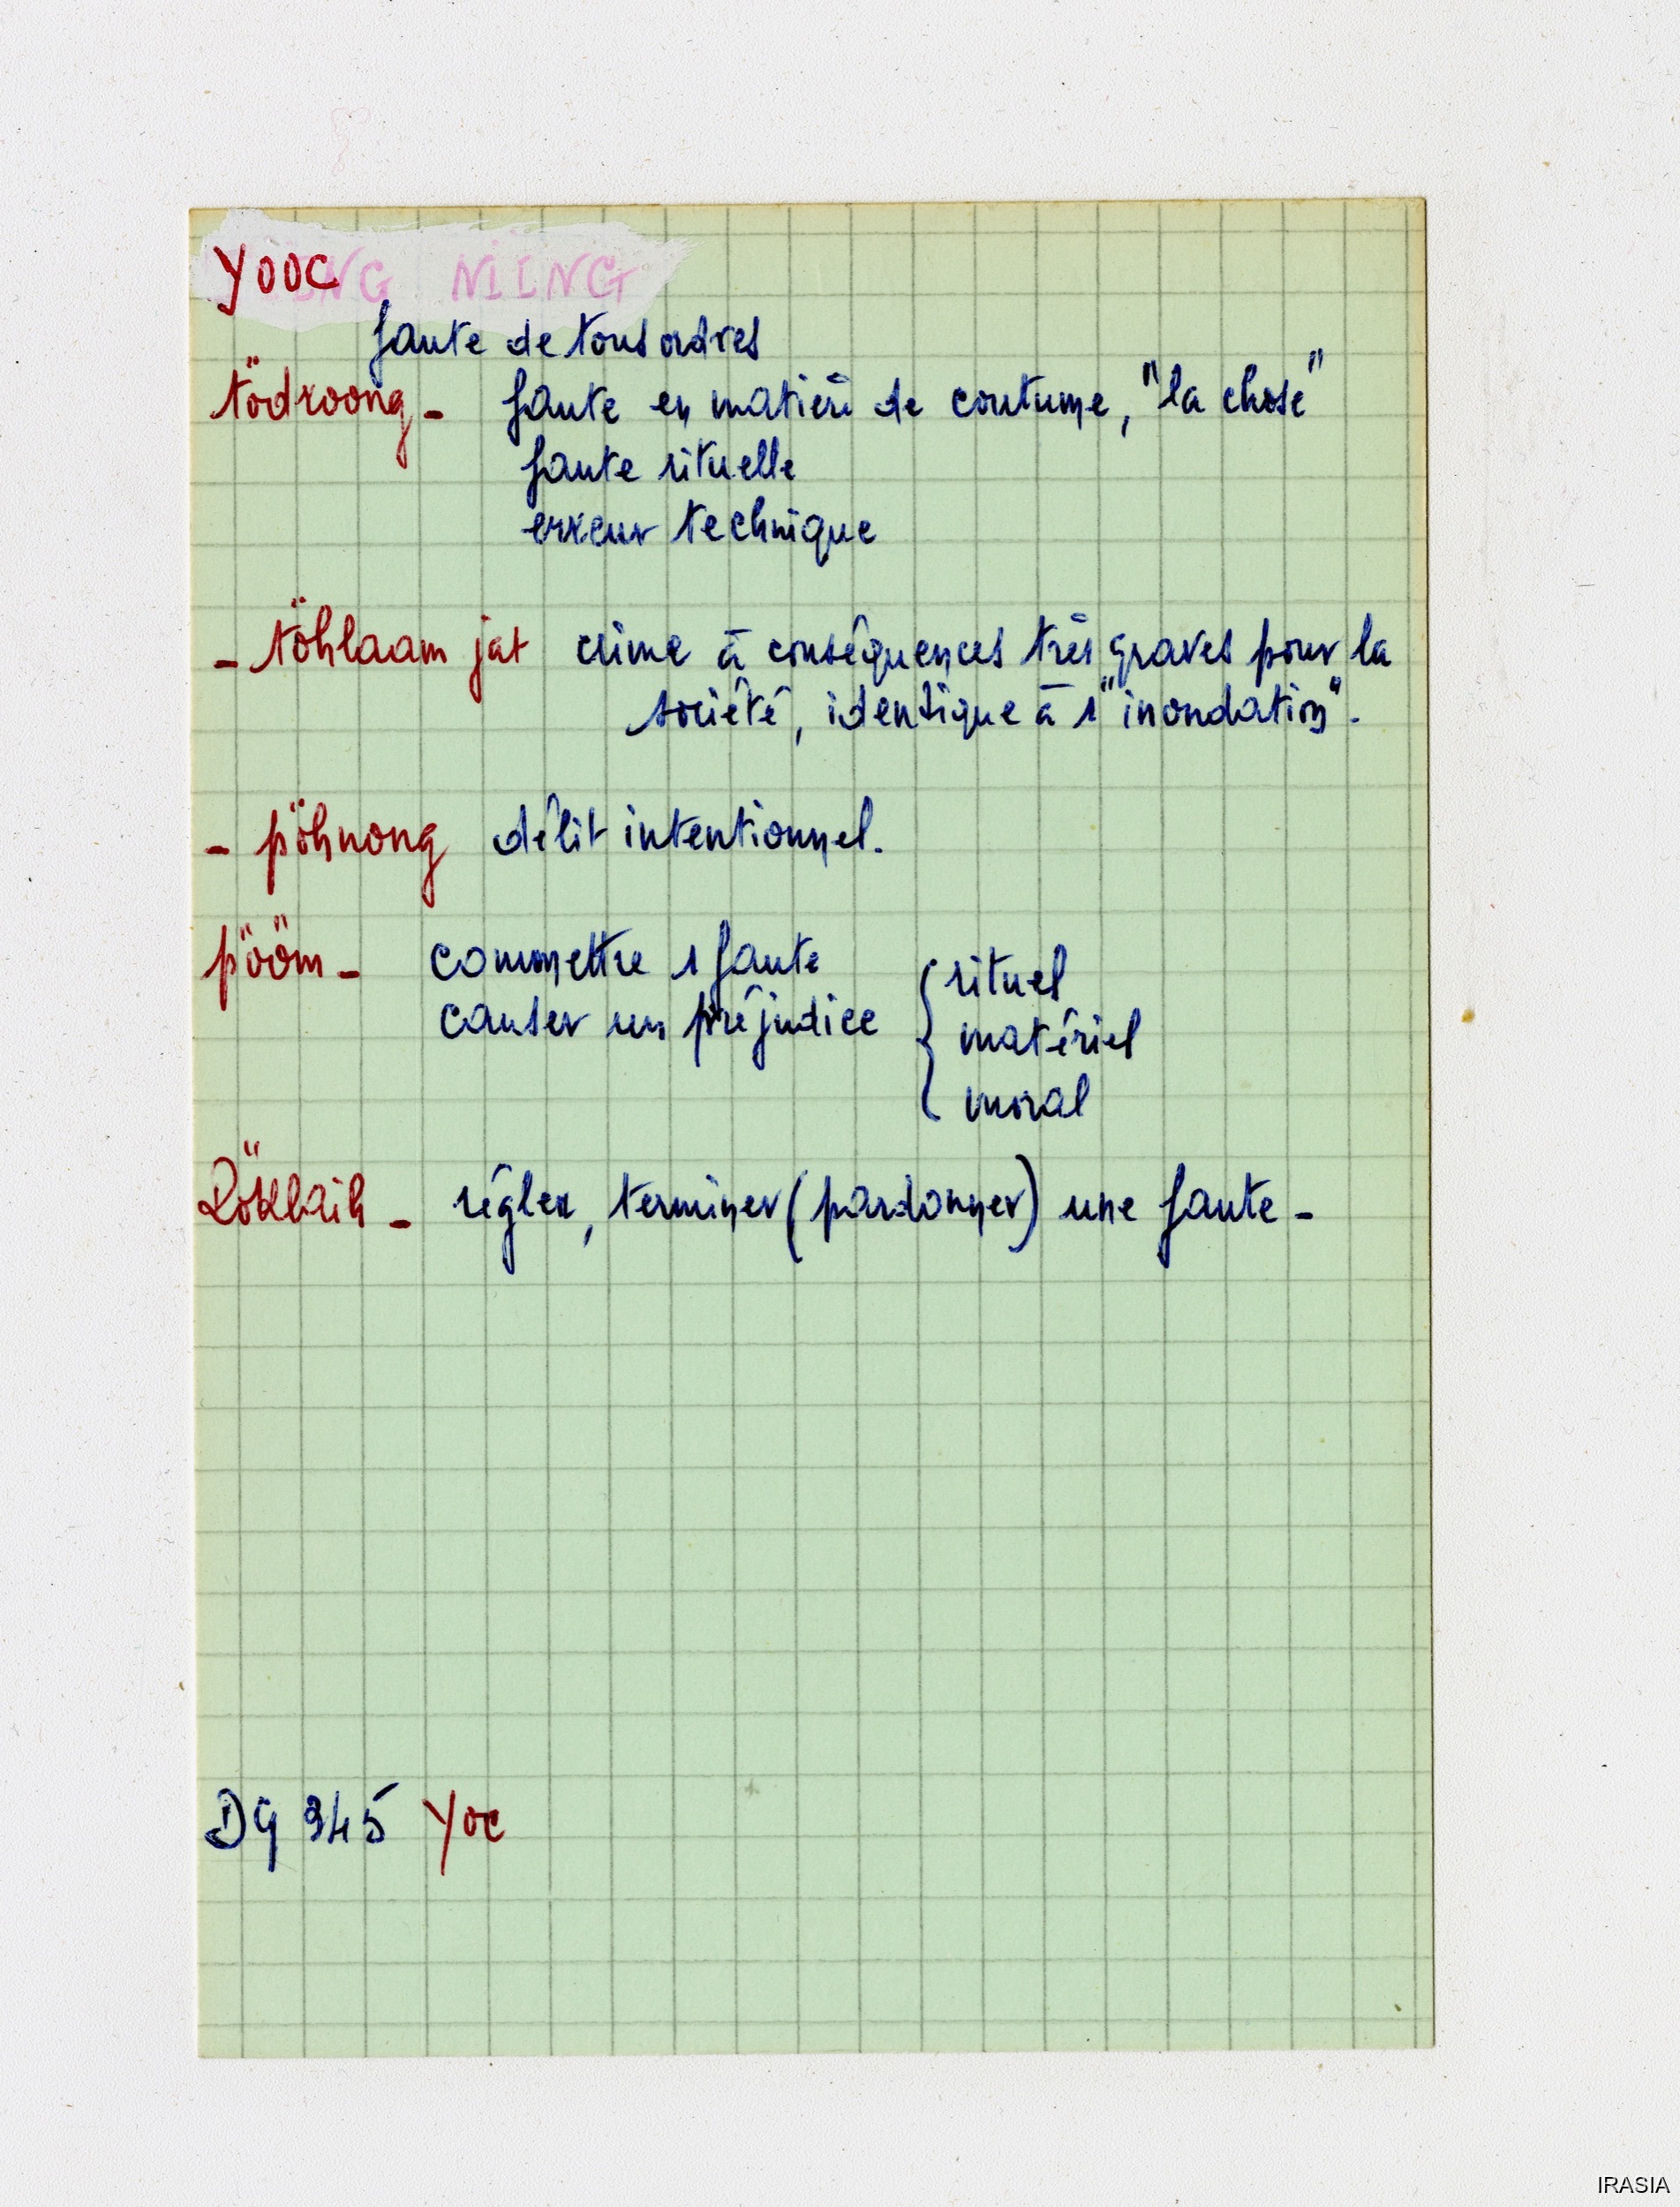 yooc
faute de tous ordres
tödroong - faute en matière de coutume, "la chose"
faute rituelle
erreur technique
- töhlaam jat crime à conséquences très graves pour la
société, identique à 1 "inondation".
- pöhnong délit intentionnel.
pööm - commettre 1 faute
causer un préjudice { rituel
matériel
moral
régler, terminer (pardonner) une faute -
DG 345 Yoc
IRASIA